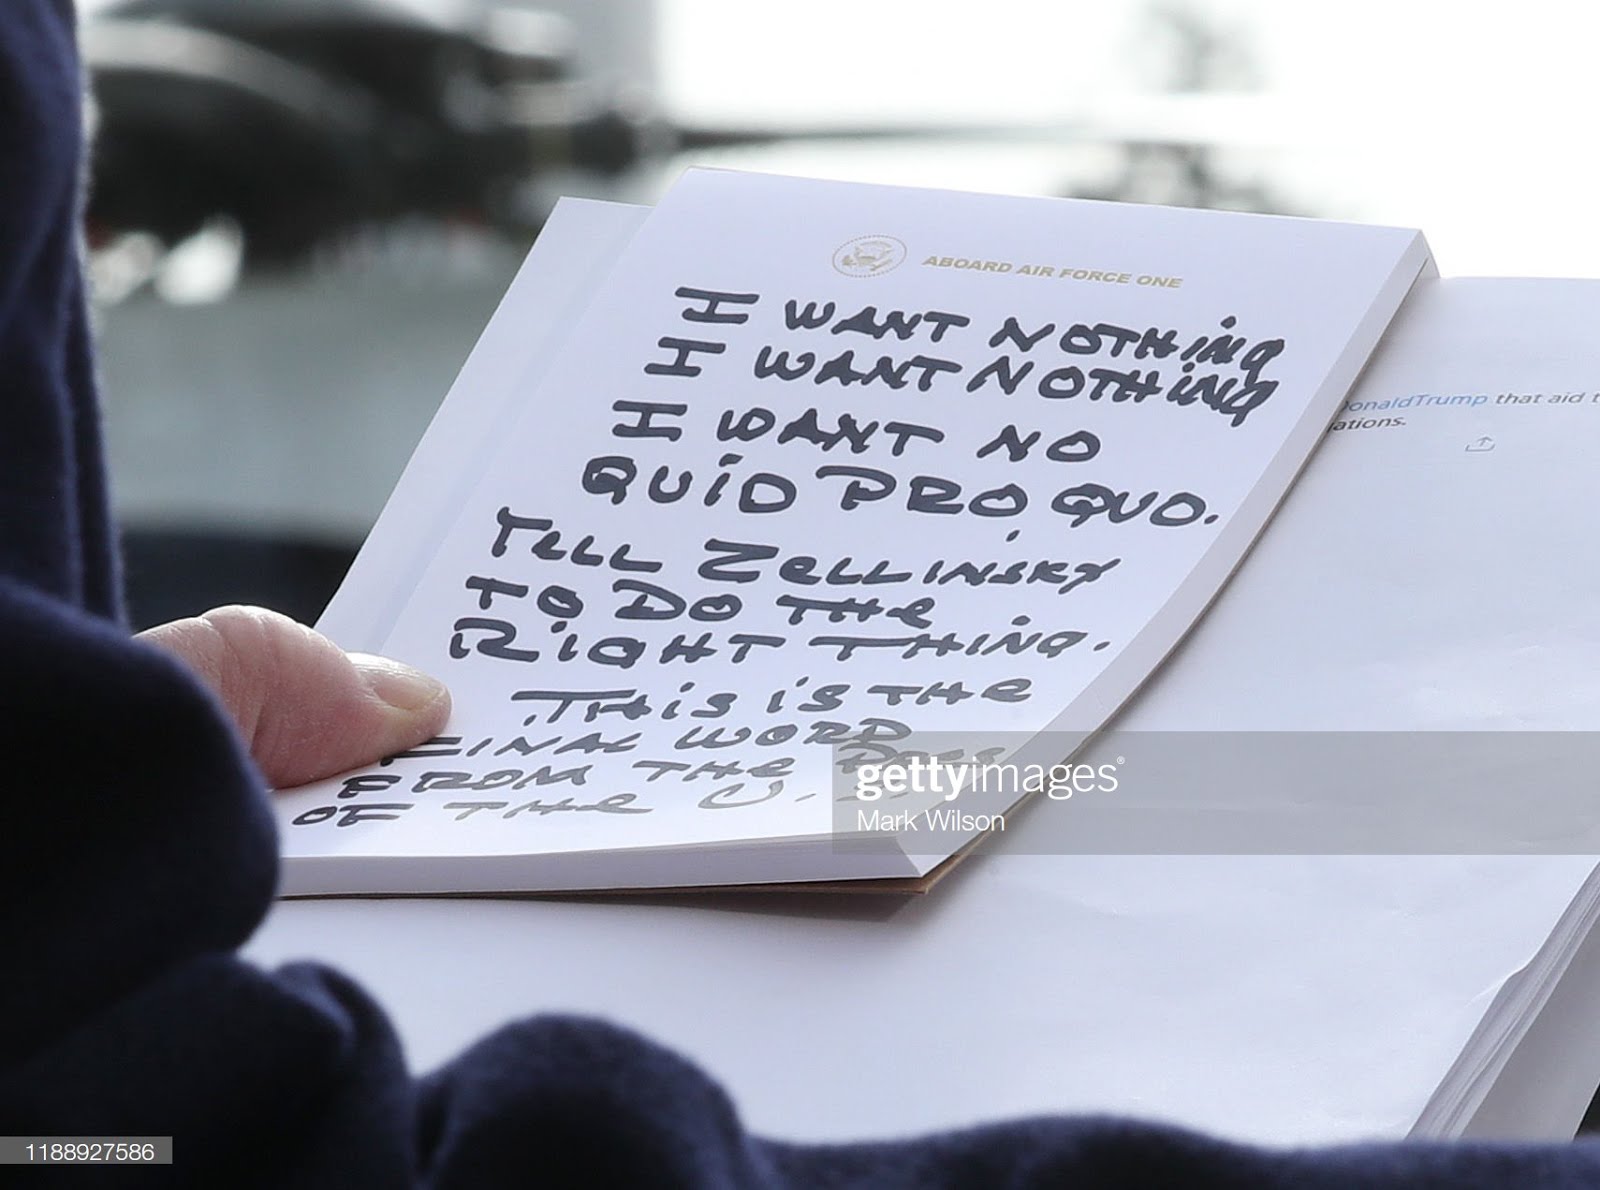 ABOARD AIR FORCE ONE
I WANT NOTHING
I WANT NOTHING
I WANT NO
QUID PRO QUO.
TELL ZELLINSKY
TO DO THE
RIGHT THING.
THIS IS THE
FINAL WORD
FROM THE PRES
OF THE U.
onaldTrump that aid t
ations.
gettyimages®
Mark Wilson
1188927586